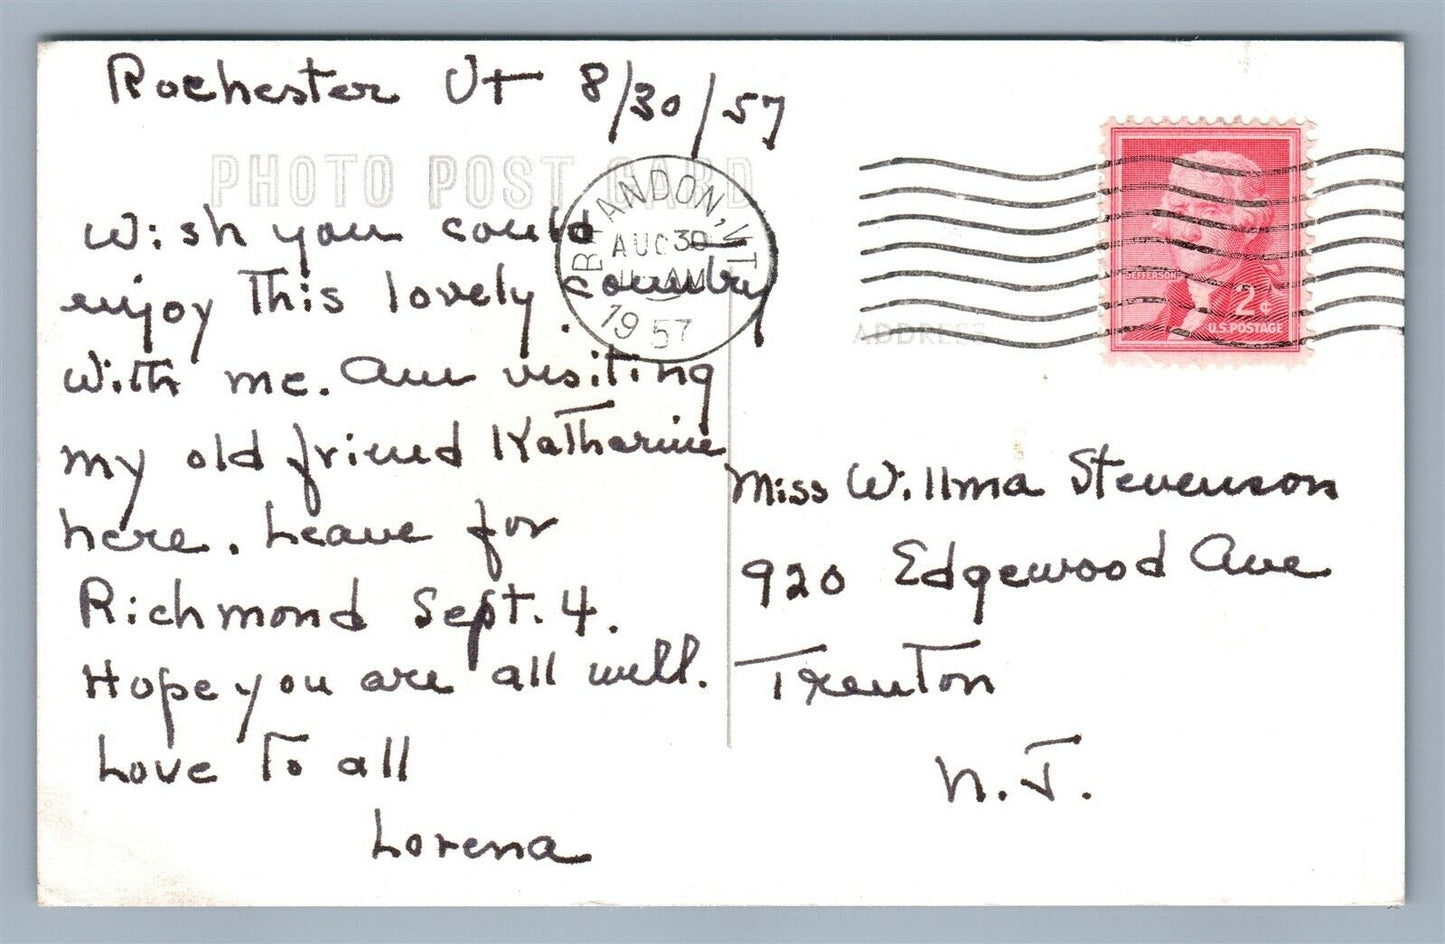 Rochester Vt 8/30/57
PHOTO POST CARD
Wish you could
enjoy This lovely country
with me. Am visiting
my old friend Katharine
here. Leave for
Richmond Sept. 4.
Hope you are all well.
Love To all
Lorena
BRANDON, VT
AUG 30
11 AM
1957
JEFFERSON
2¢
U.S. POSTAGE
ADDRESS
Miss Willma Stevenson
920 Edgewood Ave
Trenton
N.J.